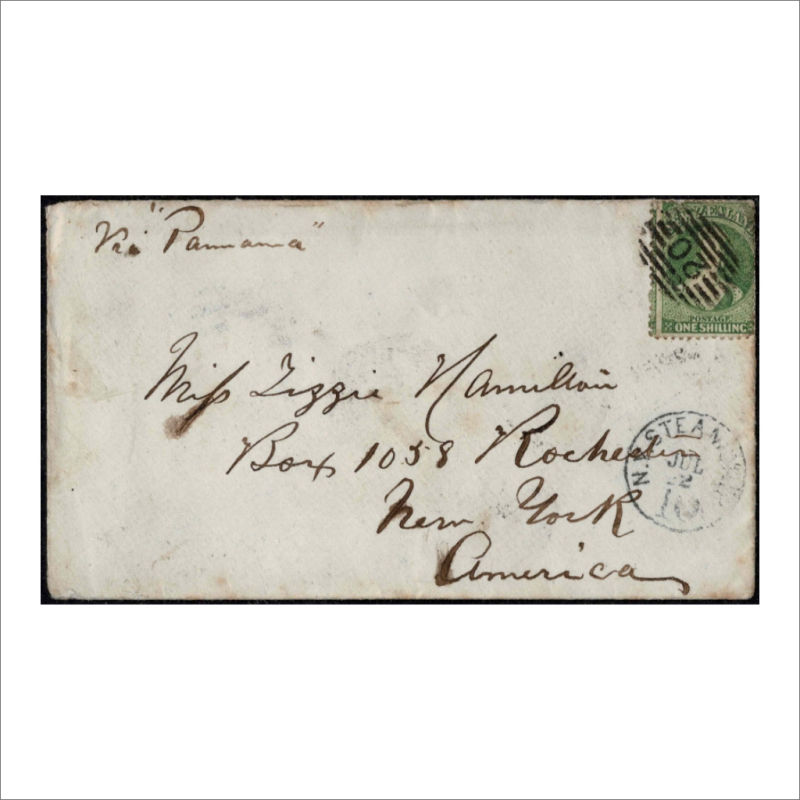 Via "Pannama"
NEW ZEALAND
02
POSTAGE
ONE SHILLING
Miss Lizzie Hamilton
Box 1058 Rochester
New York
America
N.Y. STEAMSHIP
JUL
2
10